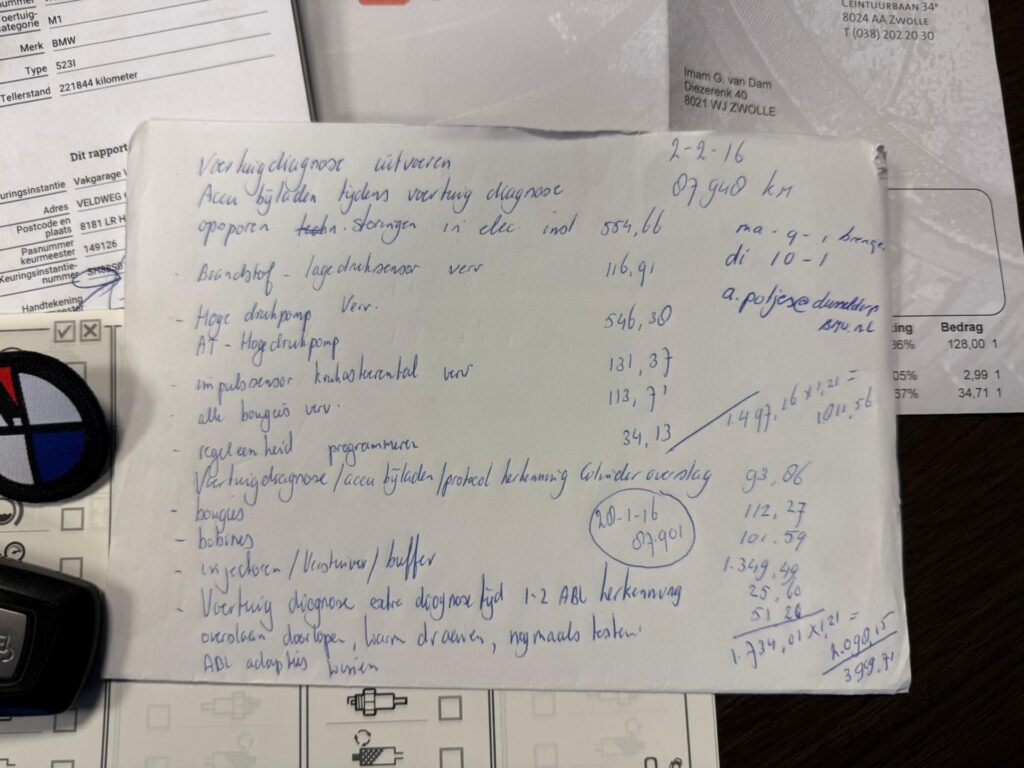 nummer
Voertuig-
categorie M1
Merk BMW
Type 523I
Tellerstand 221844 kilometer
Dit rapport
Keuringsinstantie Vakgarage
Adres VELDWEG
Postcode en
plaats 8181 LR H
Pasnummer
keurmeester 149126
Keuringsinstantie-
nummer
Handtekening
CEINTUURBAAN 34ª
8024 AA ZWOLLE
T (038) 202 20 30
Imam G. van Dam
Diezerenk 40
8021 WJ ZWOLLE
Bedrag
36% 128,00 1
05% 2,99 1
67% 34,71 1
2-2-16
Voertuigdiagnose uitvoeren
87940 km
Accu bijladen tijdens voertuig diagnose
opsporen storingen in elec inst 554,66
ma - 9 - 1
di 10 - 1
- Brandstof - lagedruksensor verv 116,91
- Hoge drukpomp verv. 546,38
AT - Hogedrukpomp
- impulssensor verv 131,37
- alle bougies verv. 113,71
- regeleenheid programmeren 34,13
1.497,16 x 1,21 =
Voertuigdiagnose/accu bijladen/protocol herkenning Cilinder overslag 93,86
- bougies 112,27
- bobines 101,59
28-1-16
87.901
- injectoren/Verstuiver/buffer 1.349,49
- Voertuig diagnose extra diagnosetijd 1-2 ABL herkenning 25,60
overslaan doorlopen, warm draaien, nogmaals testen. 51,20
ABL adapties wissen
1.734,01 x 1,21 =
2.098,15
399.71